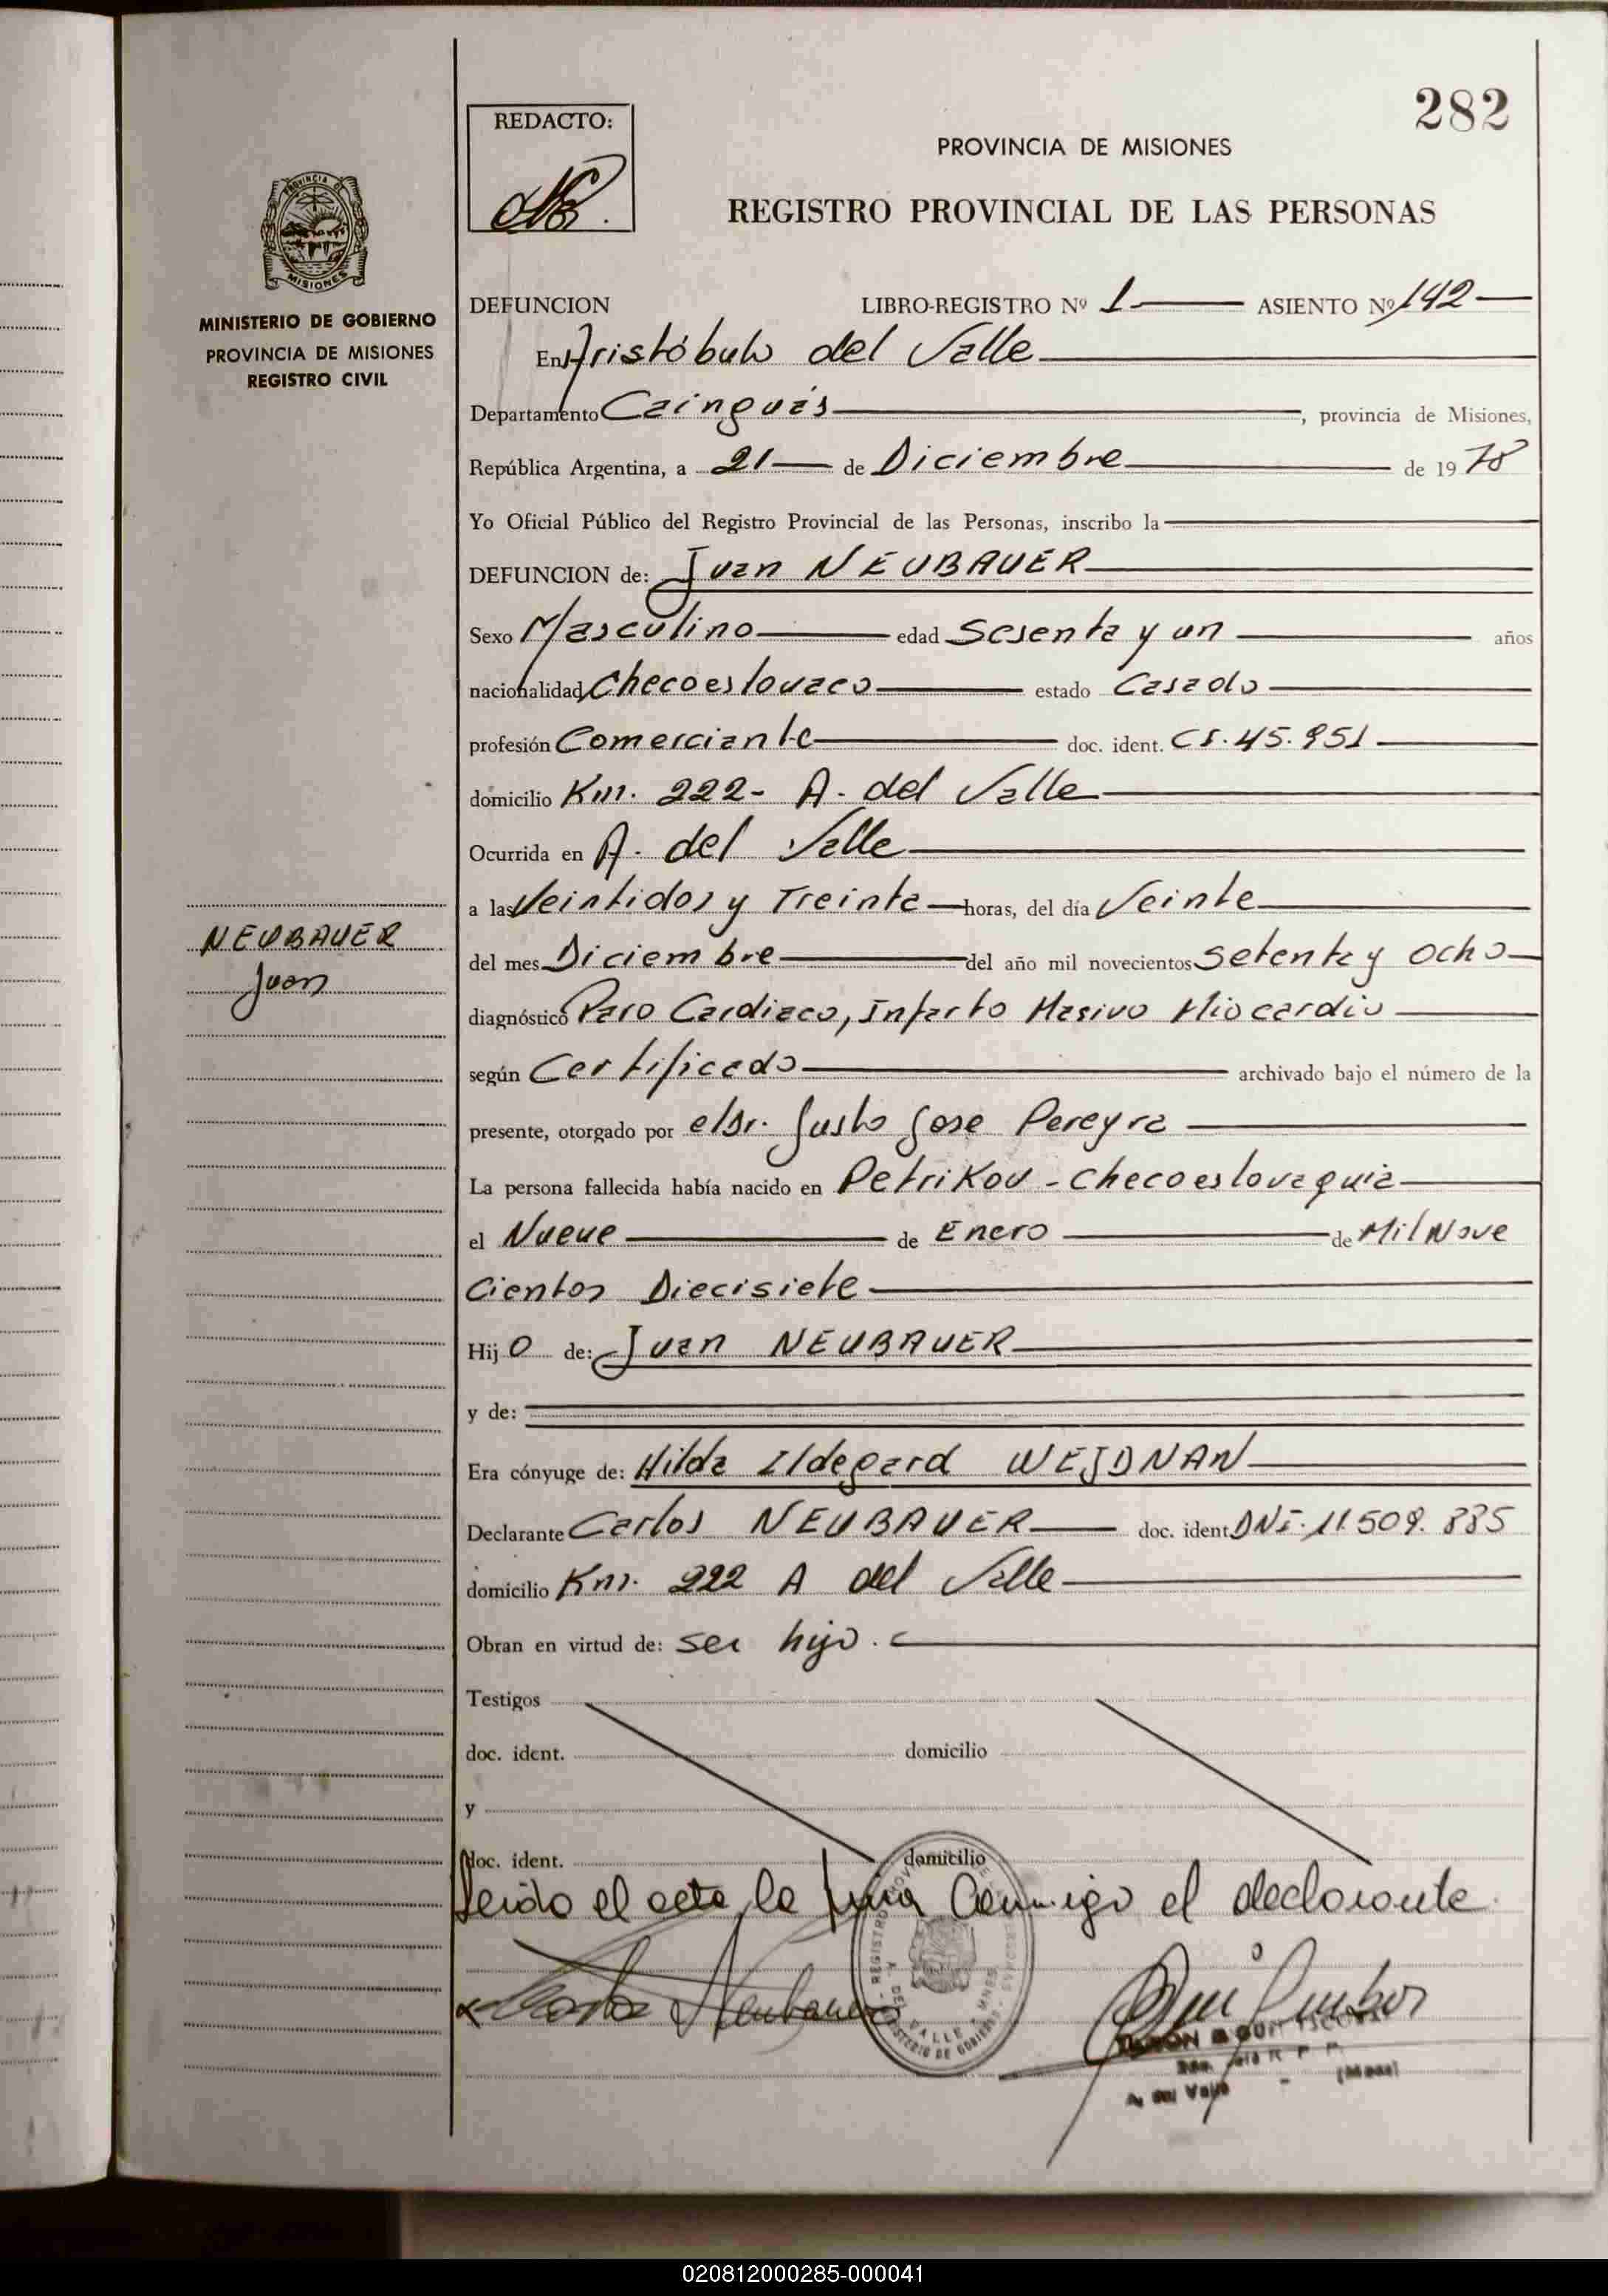 282
REDACTO:
PROVINCIA DE MISIONES
REGISTRO PROVINCIAL DE LAS PERSONAS
PROVINCIA DE
MISIONES
MINISTERIO DE GOBIERNO
PROVINCIA DE MISIONES
REGISTRO CIVIL
DEFUNCION LIBRO-REGISTRO Nº 1 ASIENTO Nº 142
En Aristóbulo del Valle
Departamento Cainguás, provincia de Misiones,
República Argentina, a 21 de Diciembre de 1978
Yo Oficial Público del Registro Provincial de las Personas, inscribo la
DEFUNCION de: Juan NEUBAUER
Sexo Masculino edad Sesenta y un años
nacionalidad Checoeslovaco estado Casado
profesión Comerciante doc. ident. CI. 45.951
domicilio Km. 222- A. del Valle
Ocurrida en A. del Valle
a las Veintidos y Treinta horas, del día Veinte
NEUBAUER
Juan
del mes Diciembre del año mil novecientos Setenta y Ocho
diagnóstico Paro Cardiaco, Infarto Masivo Miocardio
según Certificado archivado bajo el número de la
presente, otorgado por el Dr. Justo Jose Pereyra
La persona fallecida había nacido en Petrikov - Checoeslovaquia
el Nueve de Enero de Mil Nove
Cientos Diecisiete
Hijo de: Juan NEUBAUER
y de:
Era cónyuge de: Hilda Ildegard WEJDNAN
Declarante Carlos NEUBAUER doc. ident. DNI. 11.509.885
domicilio Km. 222 A del Valle
Obran en virtud de: ser hijo.
Testigos
doc. ident. domicilio
y
doc. ident. domicilio
Leido el acta, la firma Conmigo el declarante
Carlos Neubauer
A. del Valle (Mnes)
020812000285-000041